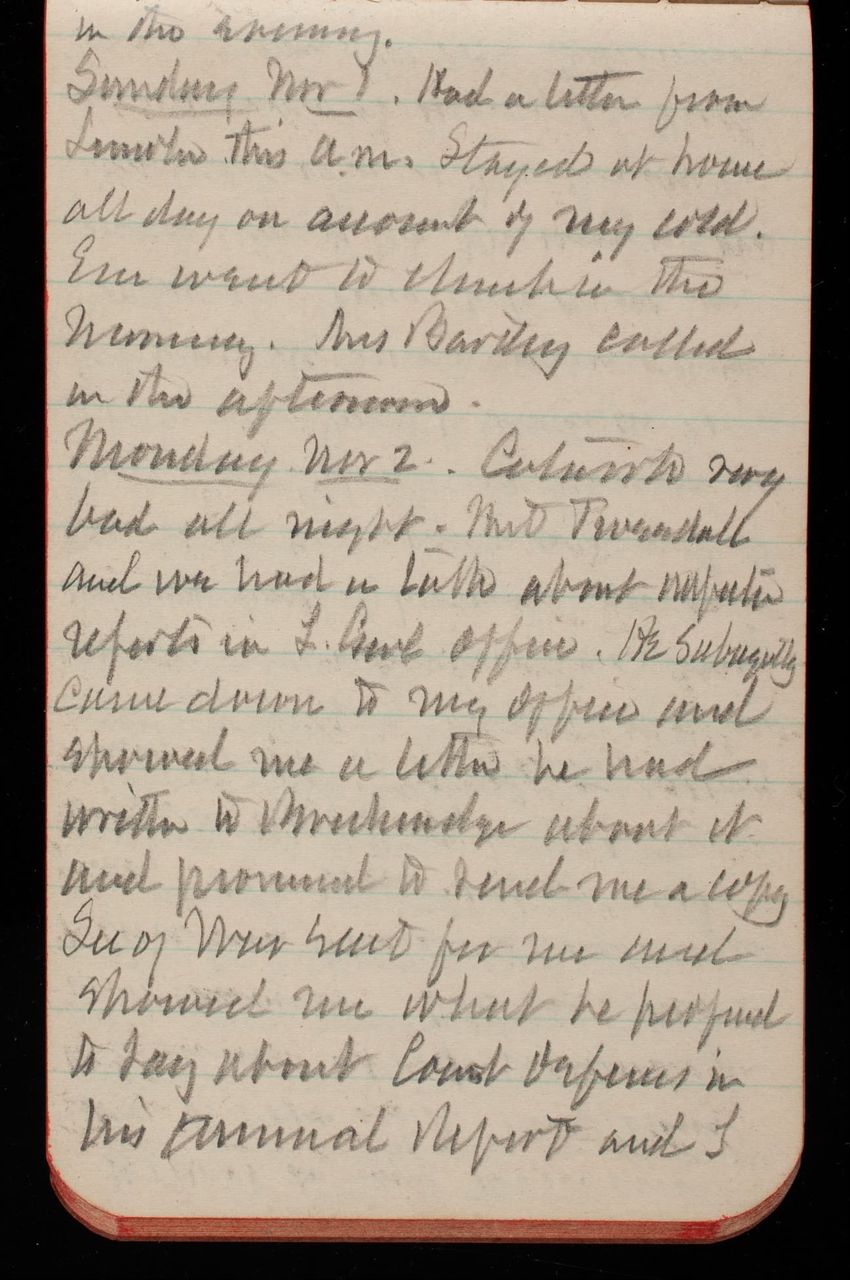 in the evening.
Sunday Nov 1. Had a letter from
this A.M. Stayed at home
all day on account of my cold.
Em went to church in the
Morning. Mrs called
in the afternoon.
Monday Nov 2. very
bad all night. Met
and we had a talk about
reports in office. He subsequently
came down to my office and
showed me a letter he had
written to Breckenridge about it
and promised to send me a copy
Sec of War sent for me and
showed me what he proposed
to say about Coast defenses in
his Annual Report and I